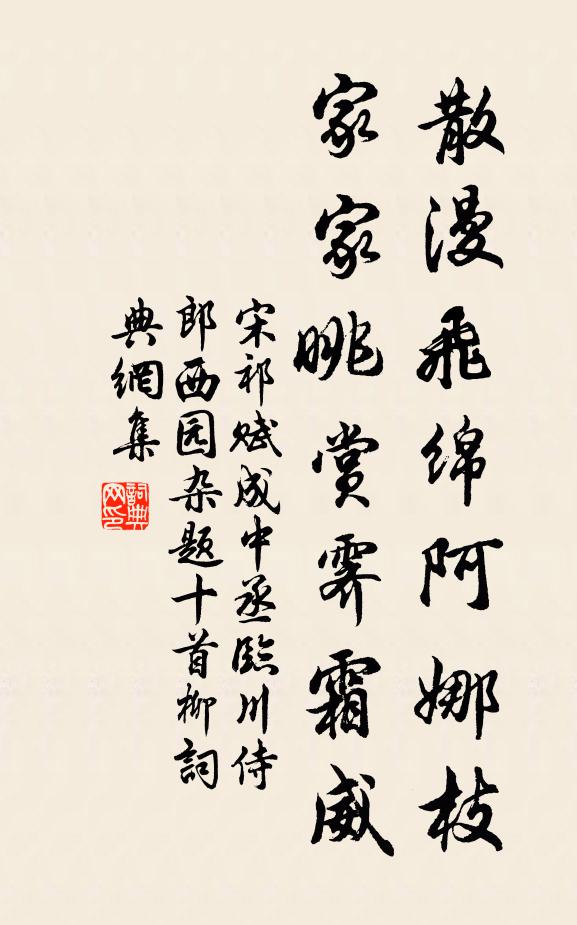 散漫飛绵阿娜枝
家家眺赏霁霜威
宋祁赋成中丞臨川侍
郎西园杂题十首柳詞
典網集
詞典网印